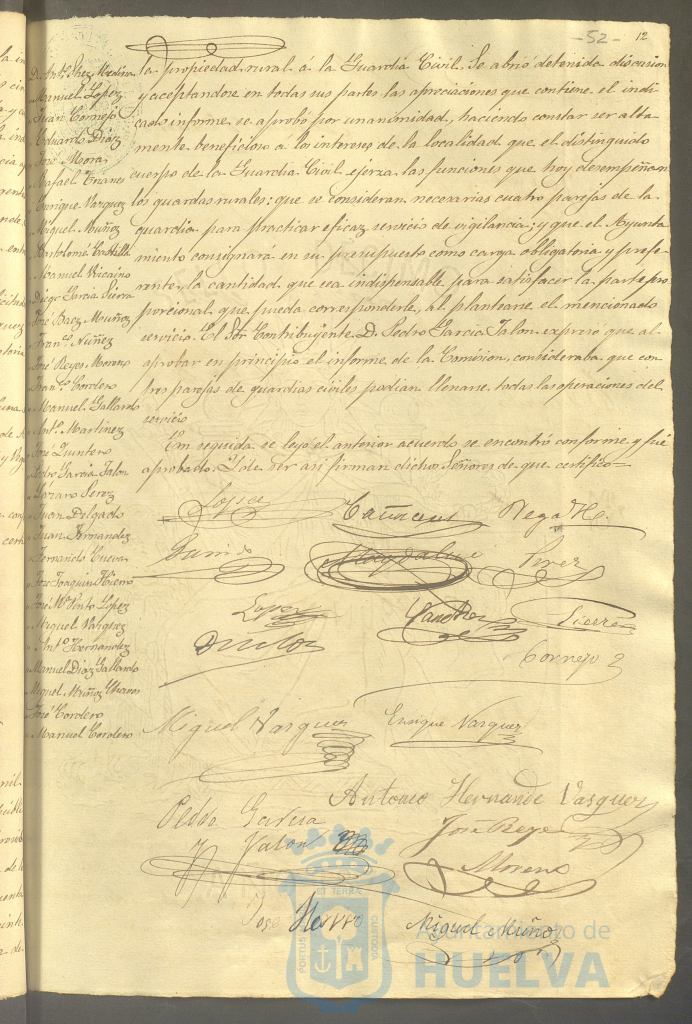 -52- 12
D. Antº. Sñez Medina
Manuel Lopez
Juan Cornejo
Eduardo Diaz
José Mora
Rafael
Enrique Vazquez
Miguel Muñoz
Bartolomé Castilla
Manuel Vizcaino
Diego Garcia Sierra
José Baez Muñoz
Franco. Nuñez
José Reyes Moreno
Franco. Cordero
Manuel Gallardo
Antº. Martinez
José Quintero
Pedro Garcia Jalon
Lázaro Perez
Juan Delgado
Juan Fernandez
Fernando Cueva
José Joaquin Hierro
José Mª Pinto Lopez
Miguel Vazquez
Antº Hernandez
Manuel Diaz Gallardo
Miguel Muñoz
José Cordero
Manuel Cordero
la propiedad rural á la Guardia Civil. Se abrió detenida discusion
y aceptandose en todas sus partes las apreciaciones que contiene el indi
cado informe se aprobó por unanimidad, haciendo constar ser alta
mente beneficioso á los intereses de la localidad que el distinguido
cuerpo de la Guardia Civil ejerza las funciones que hoy desempeñan
los guardas rurales: que se consideran necesarias cuatro parejas de la
guardia para practicar eficaz servicio de vigilancia; y que el Ayunta
miento consignará en su presupuesto como carga obligatoria y prefe
rente, la cantidad que sea indispensable para satisfacer la parte pro
porcional que pueda corresponderle, al plantearse el mencionado
servicio. El Sor Contribuyente D. Pedro Garcia Jalon expresó que al
aprobar en principio el informe de la Comision, consideraba que con
tres parejas de guardias civiles podian llenarse todas las operaciones del
servicio
Em seguida se leyó el anterior acuerdo se encontró conforme y fué
aprobado. Y de ser asi firman dichos Señores de que certifico=
Lopez Cañizares Vega
Perez
Lopez Sanchez Sierra
Cornejo
Miguel Vazquez Enrique Vazquez
Antonio Hernande Vasquez
Pedro Garcia
y Jalon José Reye
Moreno
Jose Hierro Miguel Muñoz
PORTUS MARIS ET TERRAE CUSTODIA
Ayuntamiento de
HUELVA